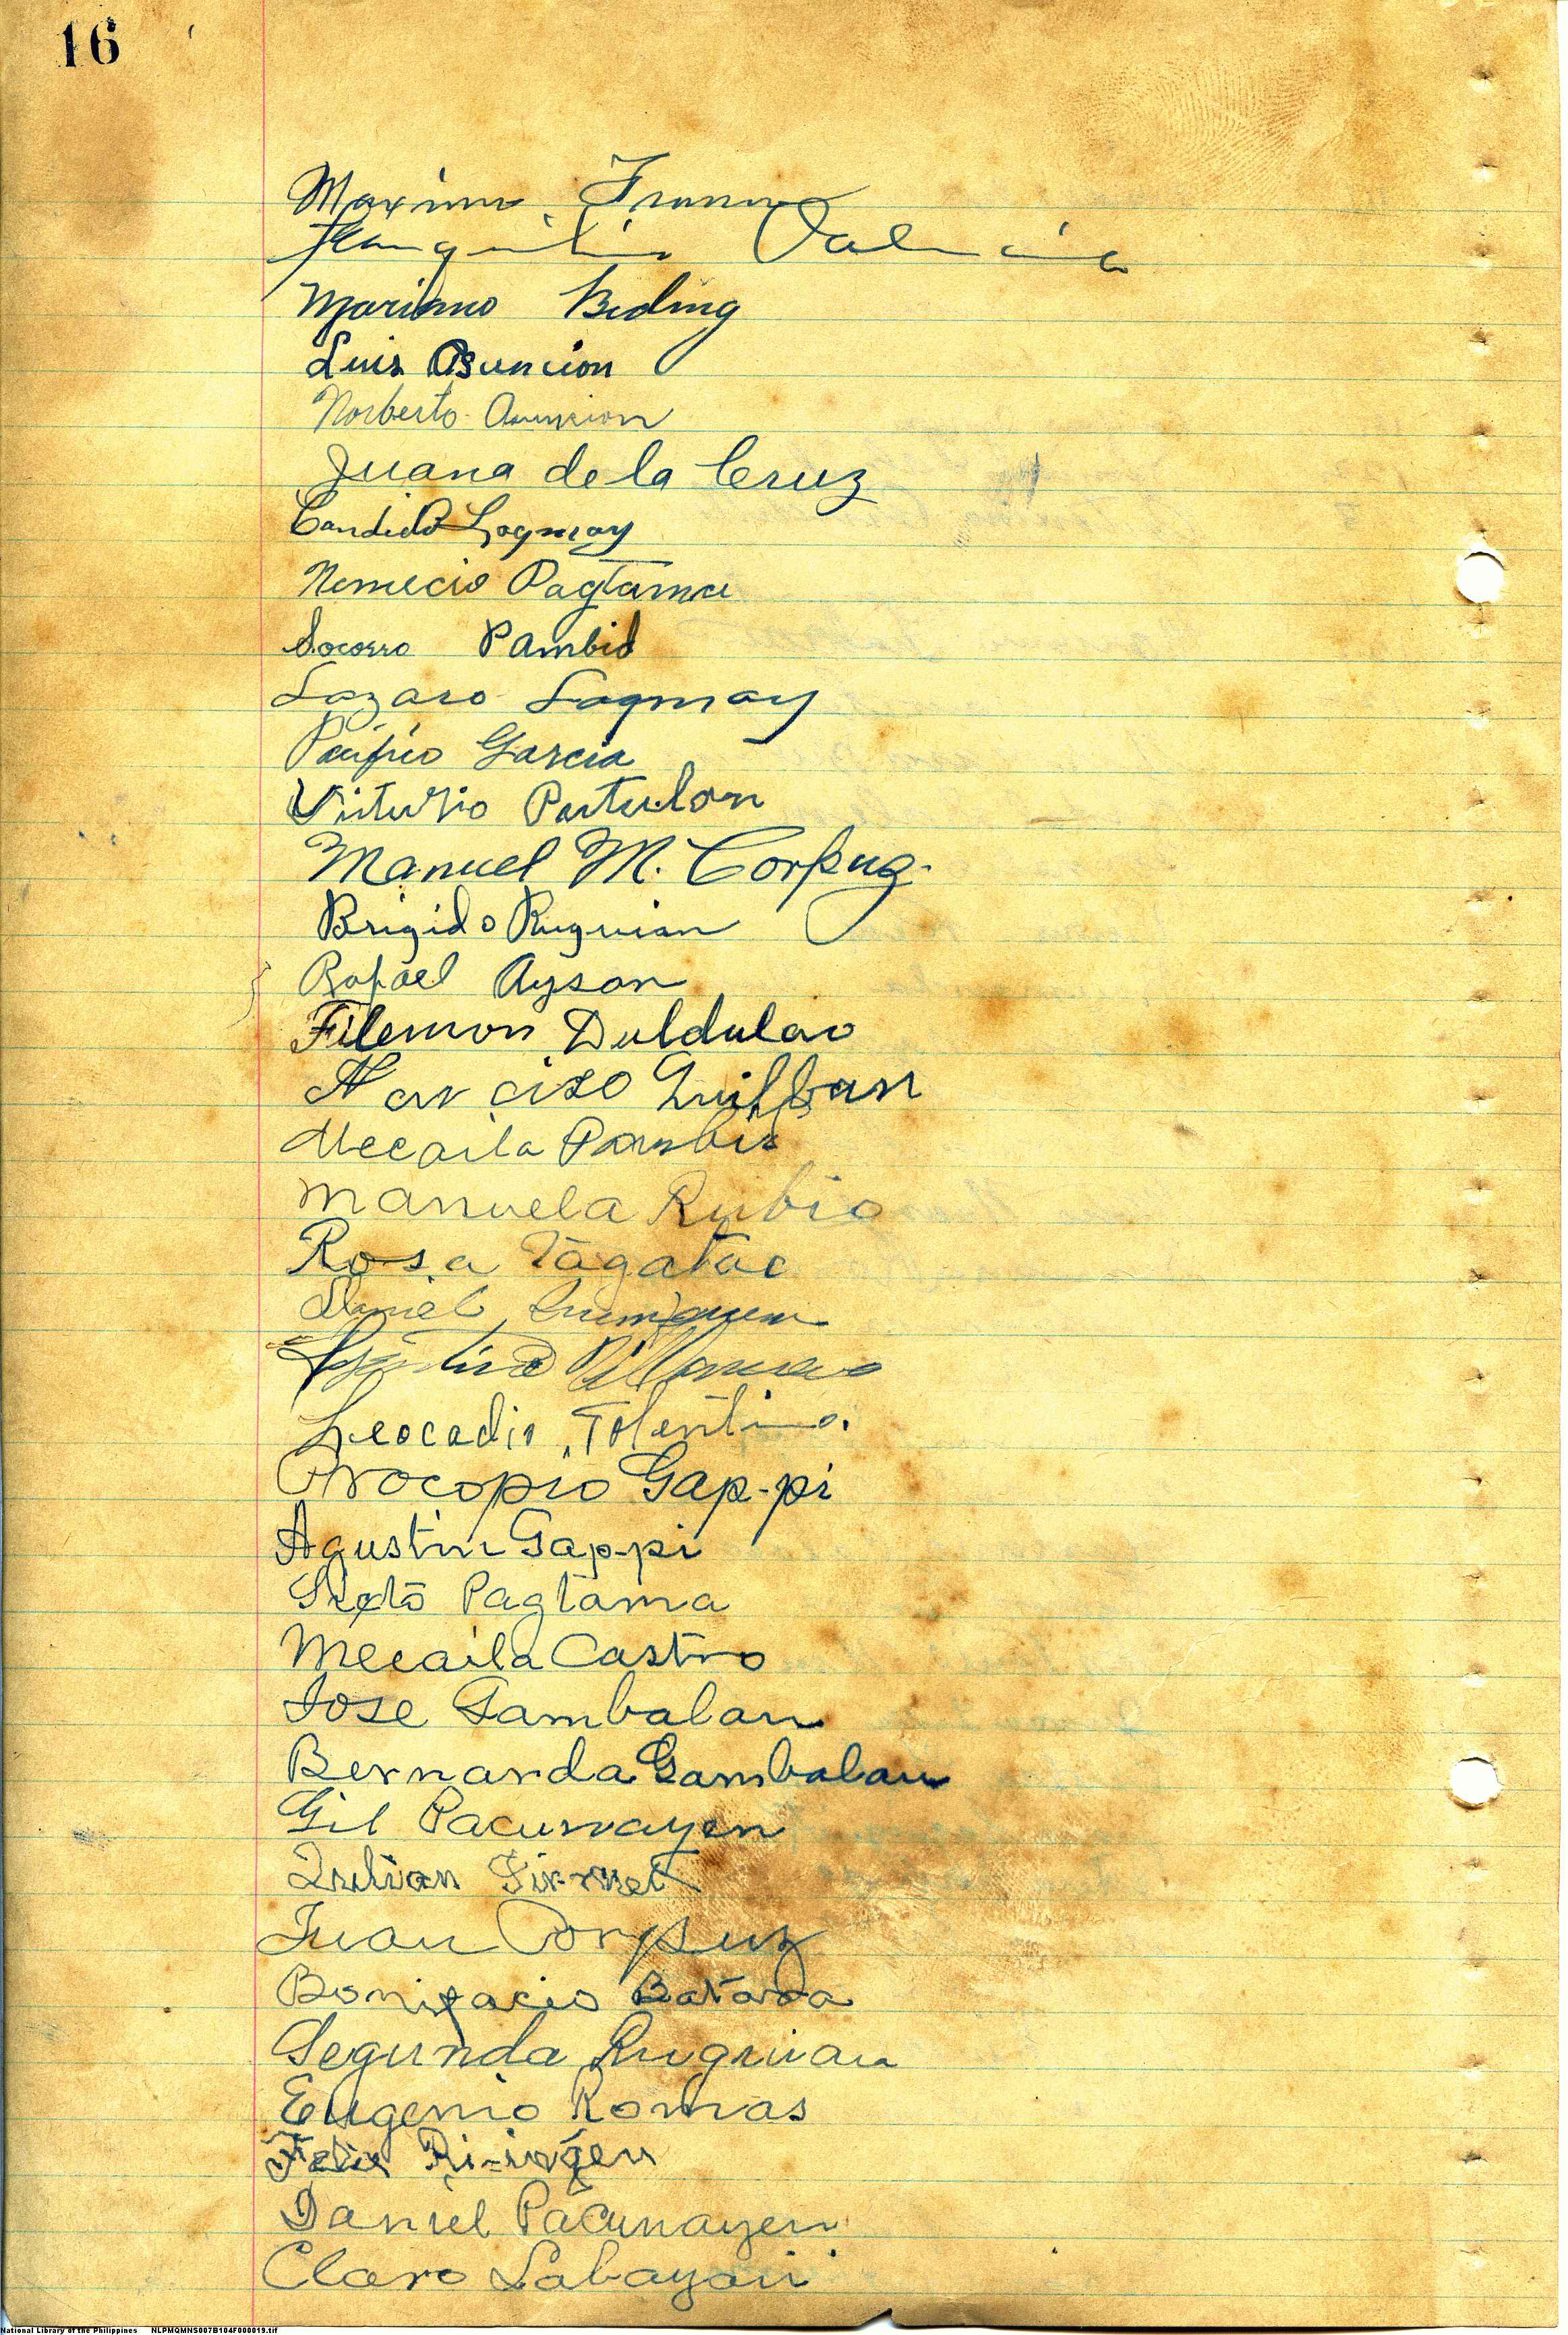 16
Maximo
Valencia
Mariano Biding
Luis Asuncion
Norberto Asuncion
Juana de la Cruz
Candido Lagmay
Nemecio Pagtama
Socorro Pambid
Lazaro Lagmay
Pacifico Garcia
Portulon
Manuel M. Corpuz.
Brigido Ruguian
Rafael Ayson
Filemon Duldulao
Narciso Quilban
Mecaila Pambid
Manuela Rubio
Rosa Tagatac
Daniel
Villanueva
Leocadio Tolentino.
Procopio Gap-pi
Agustin Gap-pi
Sixto Pagtama
Mecaila Castro
Jose Gambalan
Bernarda Gambalan
Gil Pacumayen
Julian
Juan Corpuz
Bonifacio Batara
Segunda Ruguian
Eugenio Romas
Felix Ri-ingen
Daniel Pacumayen
Claro Labayan
National Library of the Philippines NLPMQMNS007B104F000019.tif